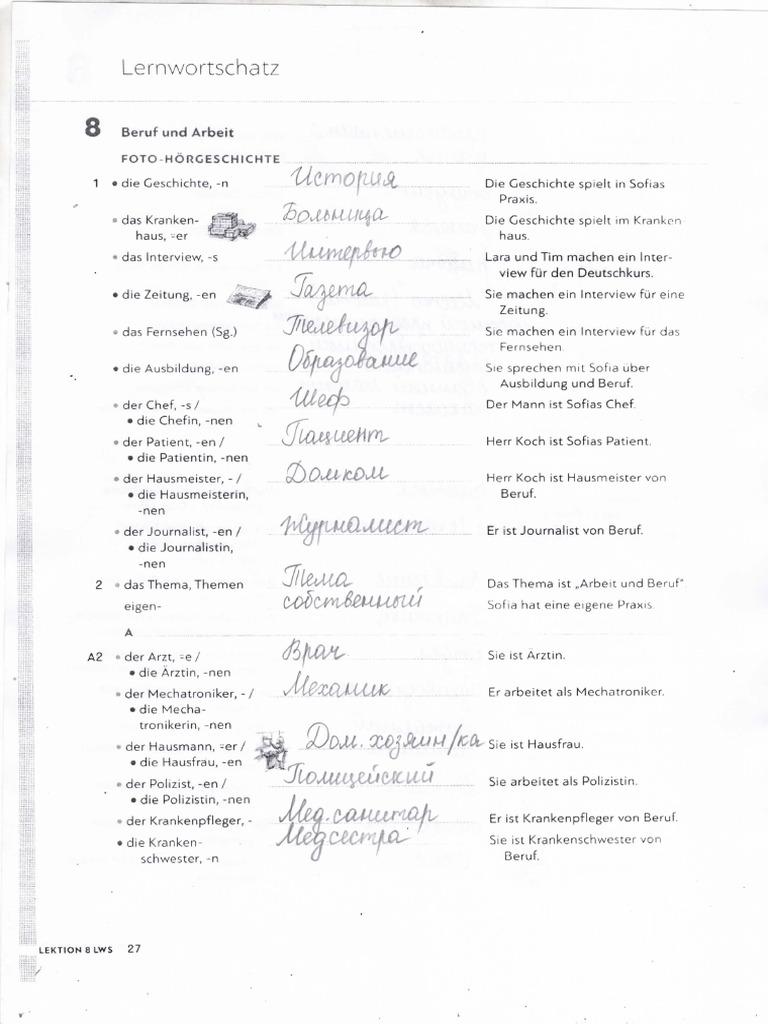 Lernwortschatz
8 Beruf und Arbeit
FOTO-HÖRGESCHICHTE
1 • die Geschichte, -n История Die Geschichte spielt in Sofias
Praxis.
• das Kranken- Больница Die Geschichte spielt im Kranken
haus, ⸚er haus.
• das Interview, -s Интервью Lara und Tim machen ein Inter-
view für den Deutschkurs.
• die Zeitung, -en Газета Sie machen ein Interview für eine
Zeitung.
• das Fernsehen (Sg.) Телевизор Sie machen ein Interview für das
Fernsehen.
• die Ausbildung, -en Образование Sie sprechen mit Sofia über
Ausbildung und Beruf.
• der Chef, -s / Шеф Der Mann ist Sofias Chef.
• die Chefin, -nen
• der Patient, -en / Пациент Herr Koch ist Sofias Patient.
• die Patientin, -nen
• der Hausmeister, - / Домком Herr Koch ist Hausmeister von
• die Hausmeisterin, Beruf.
-nen
• der Journalist, -en / Журналист Er ist Journalist von Beruf.
• die Journalistin,
-nen
2 • das Thema, Themen Тема Das Thema ist „Arbeit und Beruf“
eigen- собственный Sofia hat eine eigene Praxis.
A
A2 • der Arzt, ⸚e / Врач Sie ist Ärztin.
• die Ärztin, -nen
• der Mechatroniker, - / Механик Er arbeitet als Mechatroniker.
• die Mecha-
tronikerin, -nen
• der Hausmann, ⸚er / Дом. хозяин/ка Sie ist Hausfrau.
• die Hausfrau, -en
• der Polizist, -en / Полицейский Sie arbeitet als Polizistin.
• die Polizistin, -nen
• der Krankenpfleger, - Мед. санитар Er ist Krankenpfleger von Beruf.
• die Kranken- Медсестра Sie ist Krankenschwester von
schwester, -n Beruf.
LEKTION 8 LWS 27